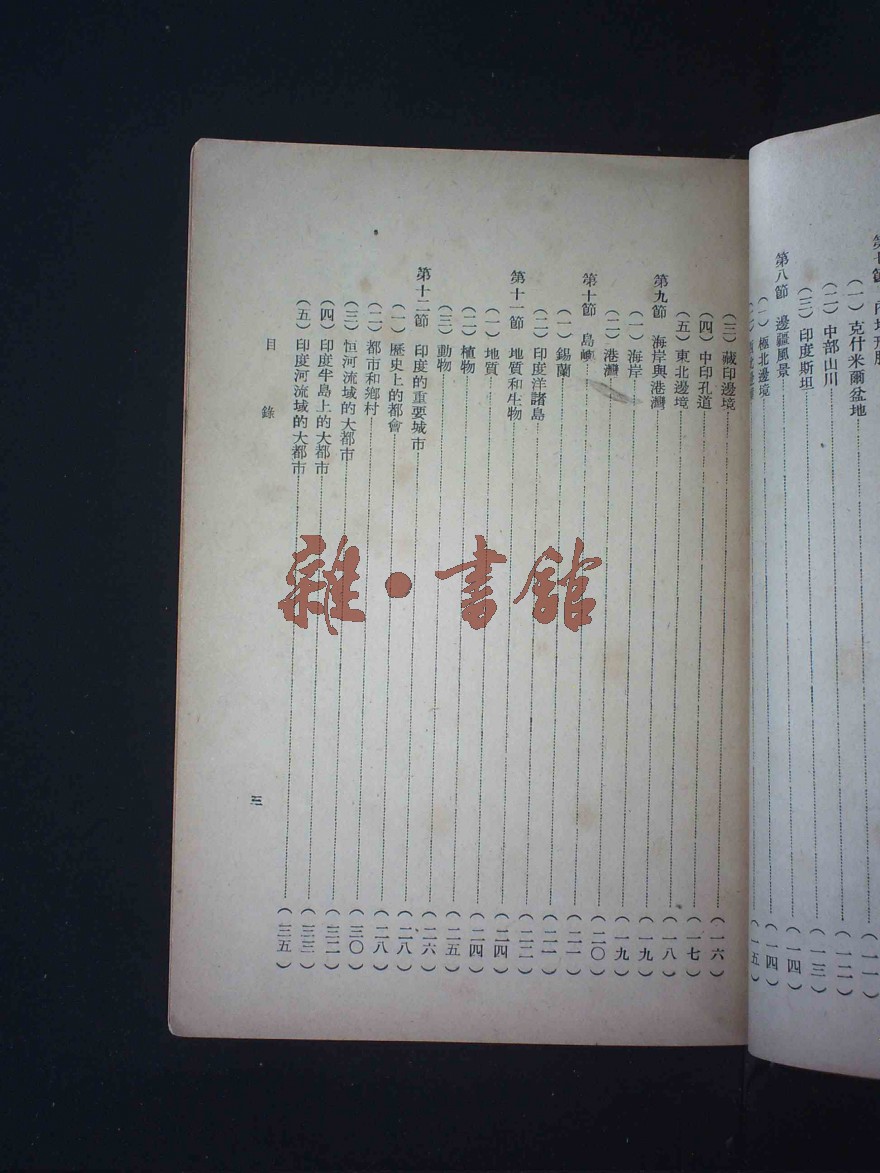 (一)克什米爾盆地……(一一)
(二)中部山川……(一二)
(三)印度斯坦……(一三)
第八節 邊疆風景……(一四)
(一)極北邊境……(一四)
(三)藏印邊境……(一六)
(四)中印孔道……(一七)
(五)東北邊境……(一八)
第九節 海岸與港灣……(一九)
(一)海岸……(一九)
(二)港灣……(二〇)
第十節 島嶼……(二一)
(一)錫蘭……(二一)
(二)印度洋諸島……(二二)
第十一節 地質和生物……(二四)
(一)地質……(二四)
(二)植物……(二五)
(三)動物……(二六)
第十二節 印度的重要城市……(二八)
(一)歷史上的都會……(二八)
(二)都市和鄉村……(三〇)
(三)恒河流域的大都市……(三二)
(四)印度半島上的大都市……(三三)
(五)印度河流域的大都市……(三五)
目錄
三
雜·書館